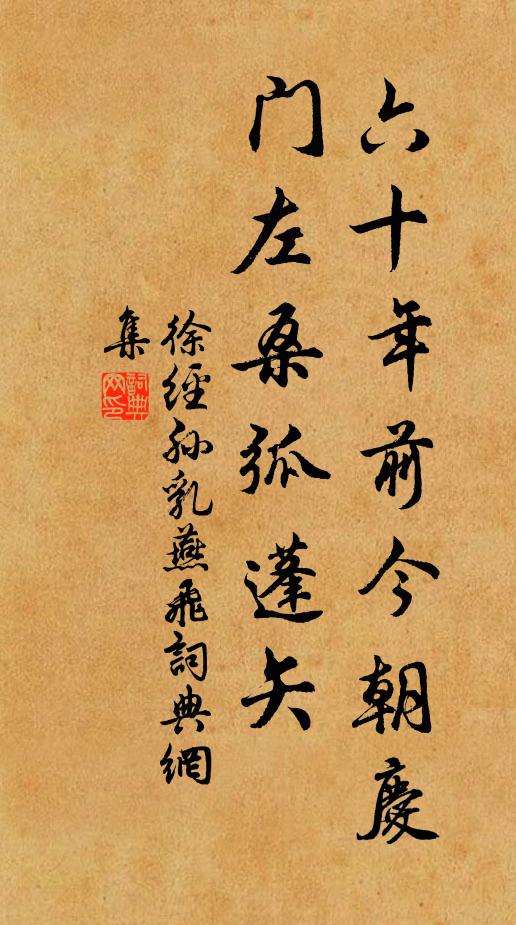 六十年前今朝慶
门左桑弧蓬矢
徐經孫乳燕飛詞典網
集
詞典
网印